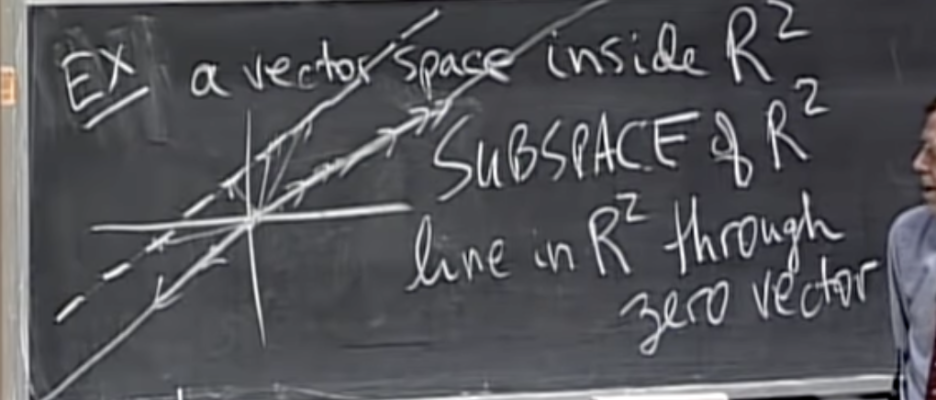 EX a vector space inside R²
SUBSPACE of R²
line in R² through
zero vector